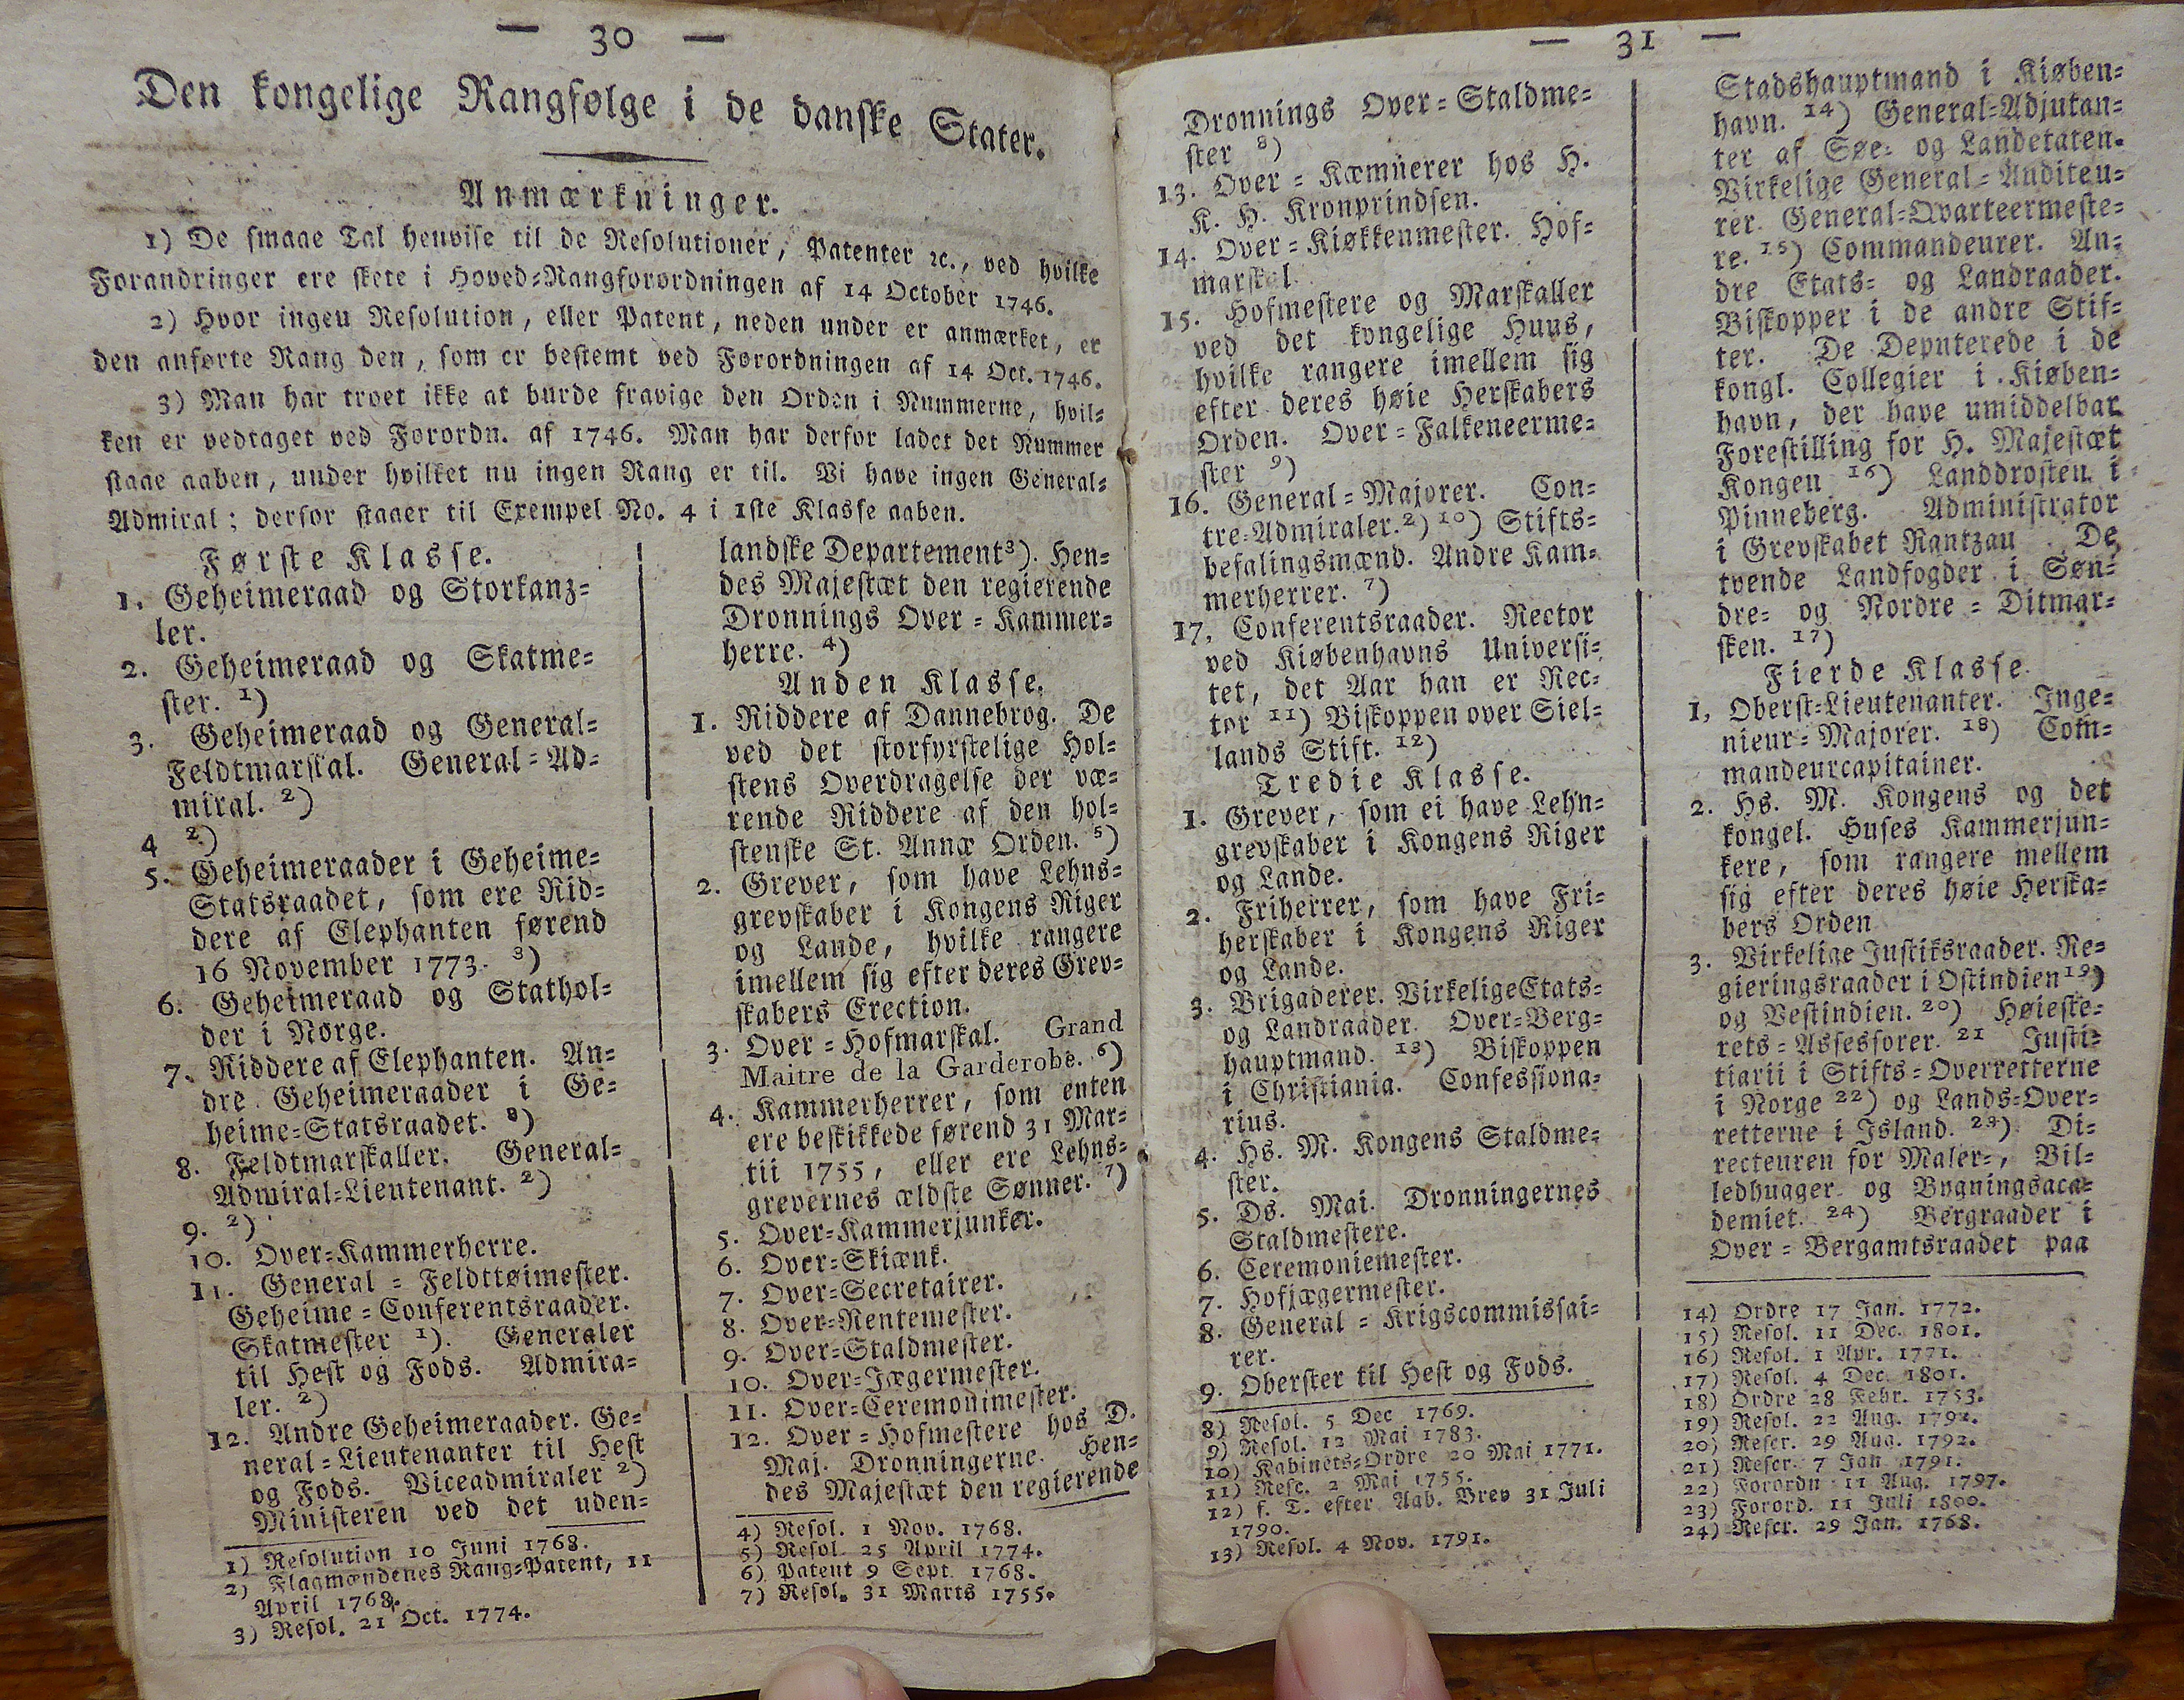 — 30 —
Den kongelige Rangfølge i de danske Stater.
Anmærkninger.
1) De smaae Tal henvise til de Resolutioner, Patenter ꝛc., ved hvilke
Forandringer ere skete i Hoved=Rangforordningen af 14 October 1746.
2) Hvor ingen Resolution, eller Patent, neden under er anmærket, er
den anførte Rang den, som er bestemt ved Forordningen af 14 Oct. 1746.
3) Man har troet ikke at burde fravige den Orden i Nummerne, hvil=
ken er vedtaget ved Forordn. af 1746. Man har derfor ladet det Nummer
staae aaben, under hvilket nu ingen Rang er til. Vi have ingen General=
Admiral; derfor staaer til Exempel No. 4 i 1ste Klasse aaben.
Første Klasse.
1. Geheimeraad og Storkanz=
ler.
2. Geheimeraad og Skatme=
ster. 1)
3. Geheimeraad og General=
Feldtmarskal. General=Ad=
miral. 2)
4 2)
5. Geheimeraader i Geheime=
Statsraadet, som ere Rid=
dere af Elephanten førend
16 November 1773. 3)
6. Geheimeraad og Stathol=
der i Norge.
7. Riddere af Elephanten. An=
dre Geheimeraader i Ge=
heime=Statsraadet. 8)
8. Feldtmarskaller. General=
Admiral=Lieutenant. 2)
9. 2)
10. Over=Kammerherre.
11. General=Feldttøimester.
Geheime=Conferentsraader.
Skatmester 1). Generaler
til Hest og Fods. Admira=
ler. 2)
12. Andre Geheimeraader. Ge=
neral=Lieutenanter til Hest
og Fods. Viceadmiraler 2)
Ministeren ved det uden=
1) Resolution 10 Juni 1768.
2) Flagmændenes Rang=Patent, 11
April 1768.
3) Resol. 21 Oct. 1774.
landske Departement3). Hen=
des Majestæt den regierende
Dronnings Over=Kammer=
herre. 4)
Anden Klasse.
1. Riddere af Dannebrog. De
ved det storfyrstelige Hol=
stens Overdragelse der væ=
rende Riddere af den hol=
stenske St. Annæ Orden. 5)
2. Grever, som have Lehns=
grevskaber i Kongens Riger
og Lande, hvilke rangere
imellem sig efter deres Grev=
skabers Erection.
3. Over=Hofmarskal. Grand
Maitre de la Garderobe. 6)
4. Kammerherrer, som enten
ere beskikkede førend 31 Mar=
tii 1755, eller ere Lehns=
grevernes ældste Sønner. 7)
5. Over=Kammerjunker.
6. Over=Skiænk.
7. Over=Secretairer.
8. Over=Rentemester.
9. Over=Staldmester.
10. Over=Jægermester.
11. Over=Ceremonimester.
12. Over=Hofmestere hos D.
Maj. Dronningerne. Hen=
des Majestæt den regierende
4) Resol. 1 Nov. 1768.
5) Resol. 25 April 1774.
6) Patent 9 Sept. 1768.
7) Resol. 31 Marts 1755.
— 31 —
Dronnings Over=Staldme=
ster 8)
13. Over=Kæmnerer hos H.
K. H. Kronprindsen.
14. Over=Kiøkkenmester. Hof=
marskal.
15. Hofmestere og Marskaller
ved det kongelige Huus,
hvilke rangere imellem sig
efter deres høie Herskabers
Orden. Over=Falkeneerme=
ster 9)
16. General=Majorer. Con=
tre=Admiraler.2) 10) Stifts=
befalingsmænd. Andre Kam=
merherrer. 7)
17. Conferentsraader. Rector
ved Kiøbenhavns Universi=
tet, det Aar han er Rec=
tor 11) Biskoppen over Siel=
lands Stift. 12)
Tredie Klasse.
1. Grever, som ei have Lehn=
grevskaber i Kongens Riger
og Lande.
2. Friherrer, som have Fri=
herskaber i Kongens Riger
og Lande.
3. Brigaderer. Virkelige Etats=
og Landraader. Over=Berg=
hauptmand. 13) Biskoppen
i Christiania. Confessiona=
rius.
4. Hs. M. Kongens Staldme=
ster.
5. Ds. Mai. Dronningernes
Staldmestere.
6. Ceremoniemester.
7. Hofjægermester.
8. General=Krigscommissai=
rer.
9. Oberster til Hest og Fods.
8) Resol. 5 Dec 1769.
9) Resol. 12 Mai 1783.
10) Kabinets=Ordre 20 Mai 1771.
11) Resc. 2 Mai 1755.
12) f. T. efter Aab. Brev 31 Juli
1790.
13) Resol. 4 Nov. 1791.
Stadshauptmand i Kiøben=
havn. 14) General=Adjutan=
ter af Søe= og Landetaten.
Virkelige General=Auditeu=
rer. General=Qvarteermeste=
re. 15) Commandeurer. An=
dre Etats= og Landraader.
Biskopper i de andre Stif=
ter. De Deputerede i de
kongl. Collegier i Kiøben=
havn, der have umiddelbar
Forestilling for H. Majestæt
Kongen 16) Landdrosten i
Pinneberg. Administrator
i Grevskabet Rantzau. De
tvende Landfogder i Søn=
dre= og Nordre=Ditmar=
sken. 17)
Fierde Klasse.
1, Oberst=Lieutenanter. Inge=
nieur=Majorer. 18) Com=
mandeurcapitainer.
2. Hs. M. Kongens og det
kongel. Huses Kammerjun=
kere, som rangere mellem
sig efter deres høie Herska=
bers Orden
3. Virkelige Justiksraader. Re=
gieringsraader i Ostindien 19)
og Vestindien. 20) Høieste=
rets=Assessorer. 21 Justi=
tiarii i Stifts=Overretterne
i Norge 22) og Lands=Over=
retterne i Island. 23) Di=
recteuren for Maler=, Bil=
ledhuger og Bygningsaca=
demiet. 24) Bergraader i
Over=Bergamtsraadet paa
14) Ordre 17 Jan. 1772.
15) Resol. 11 Dec. 1801.
16) Resol. 1 Apr. 1771.
17) Resol. 4 Dec. 1801.
18) Ordre 28 Febr. 1753.
19) Resol. 22 Aug. 1792.
20) Rescr. 29 Aug. 1792.
21) Rescr. 7 Jan 1791.
22) Forordn 11 Aug. 1797.
23) Forord. 11 Juli 1800.
24) Rescr. 29 Jan. 1768.